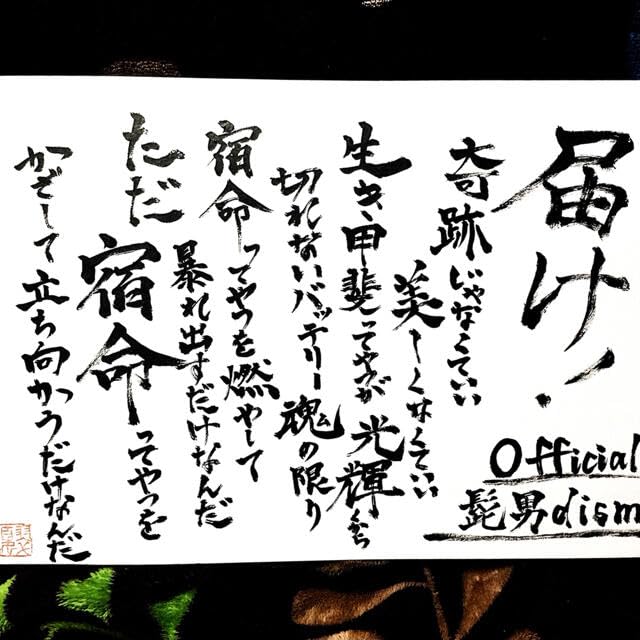 届け!
奇跡じゃなくていい
美しくなくていい
生き甲斐ってやつが光輝くから
切れないバッテリー魂の限り
宿命ってやつを燃やして
暴れ出すだけなんだ
ただ宿命ってやつを
かざして立ち向かうだけなんだ
Official
髭男dism